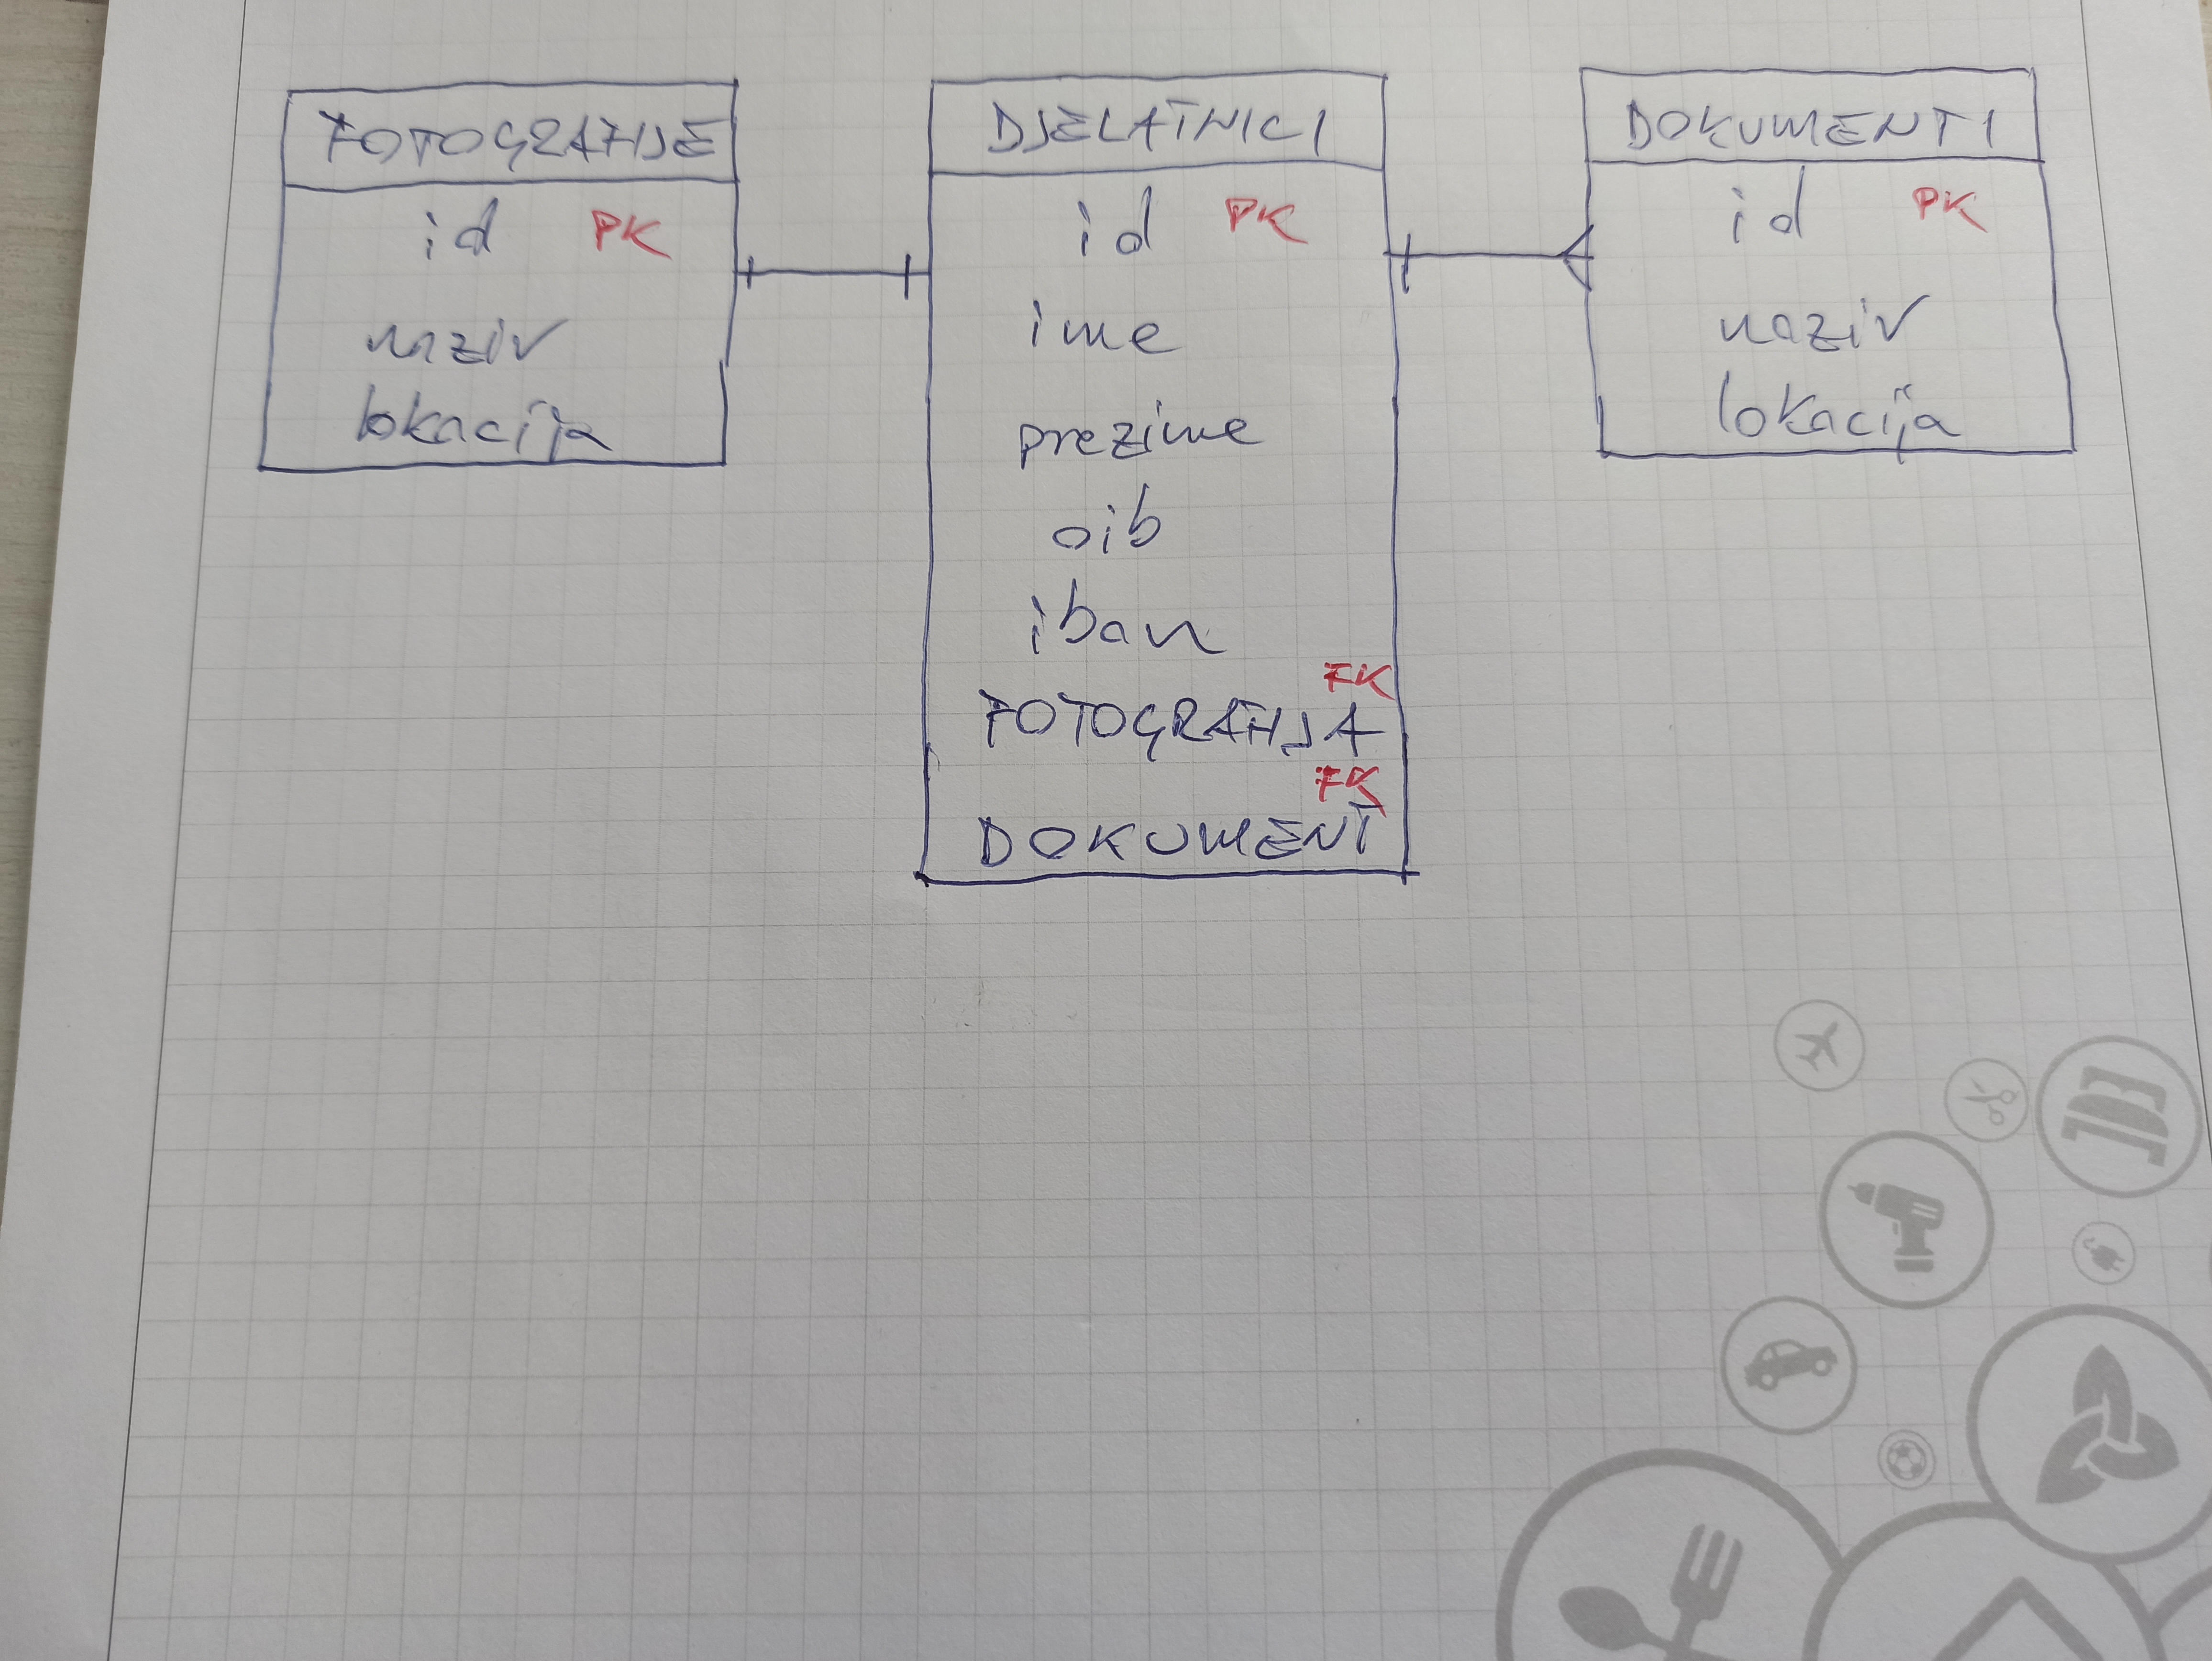 FOTOGRAFIJE
id PK
naziv
lokacija
DJELATNICI
id PK
ime
prezime
oib
iban
FK
FOTOGRAFIJA
FK
DOKUMENT
DOKUMENTI
id PK
naziv
lokacija